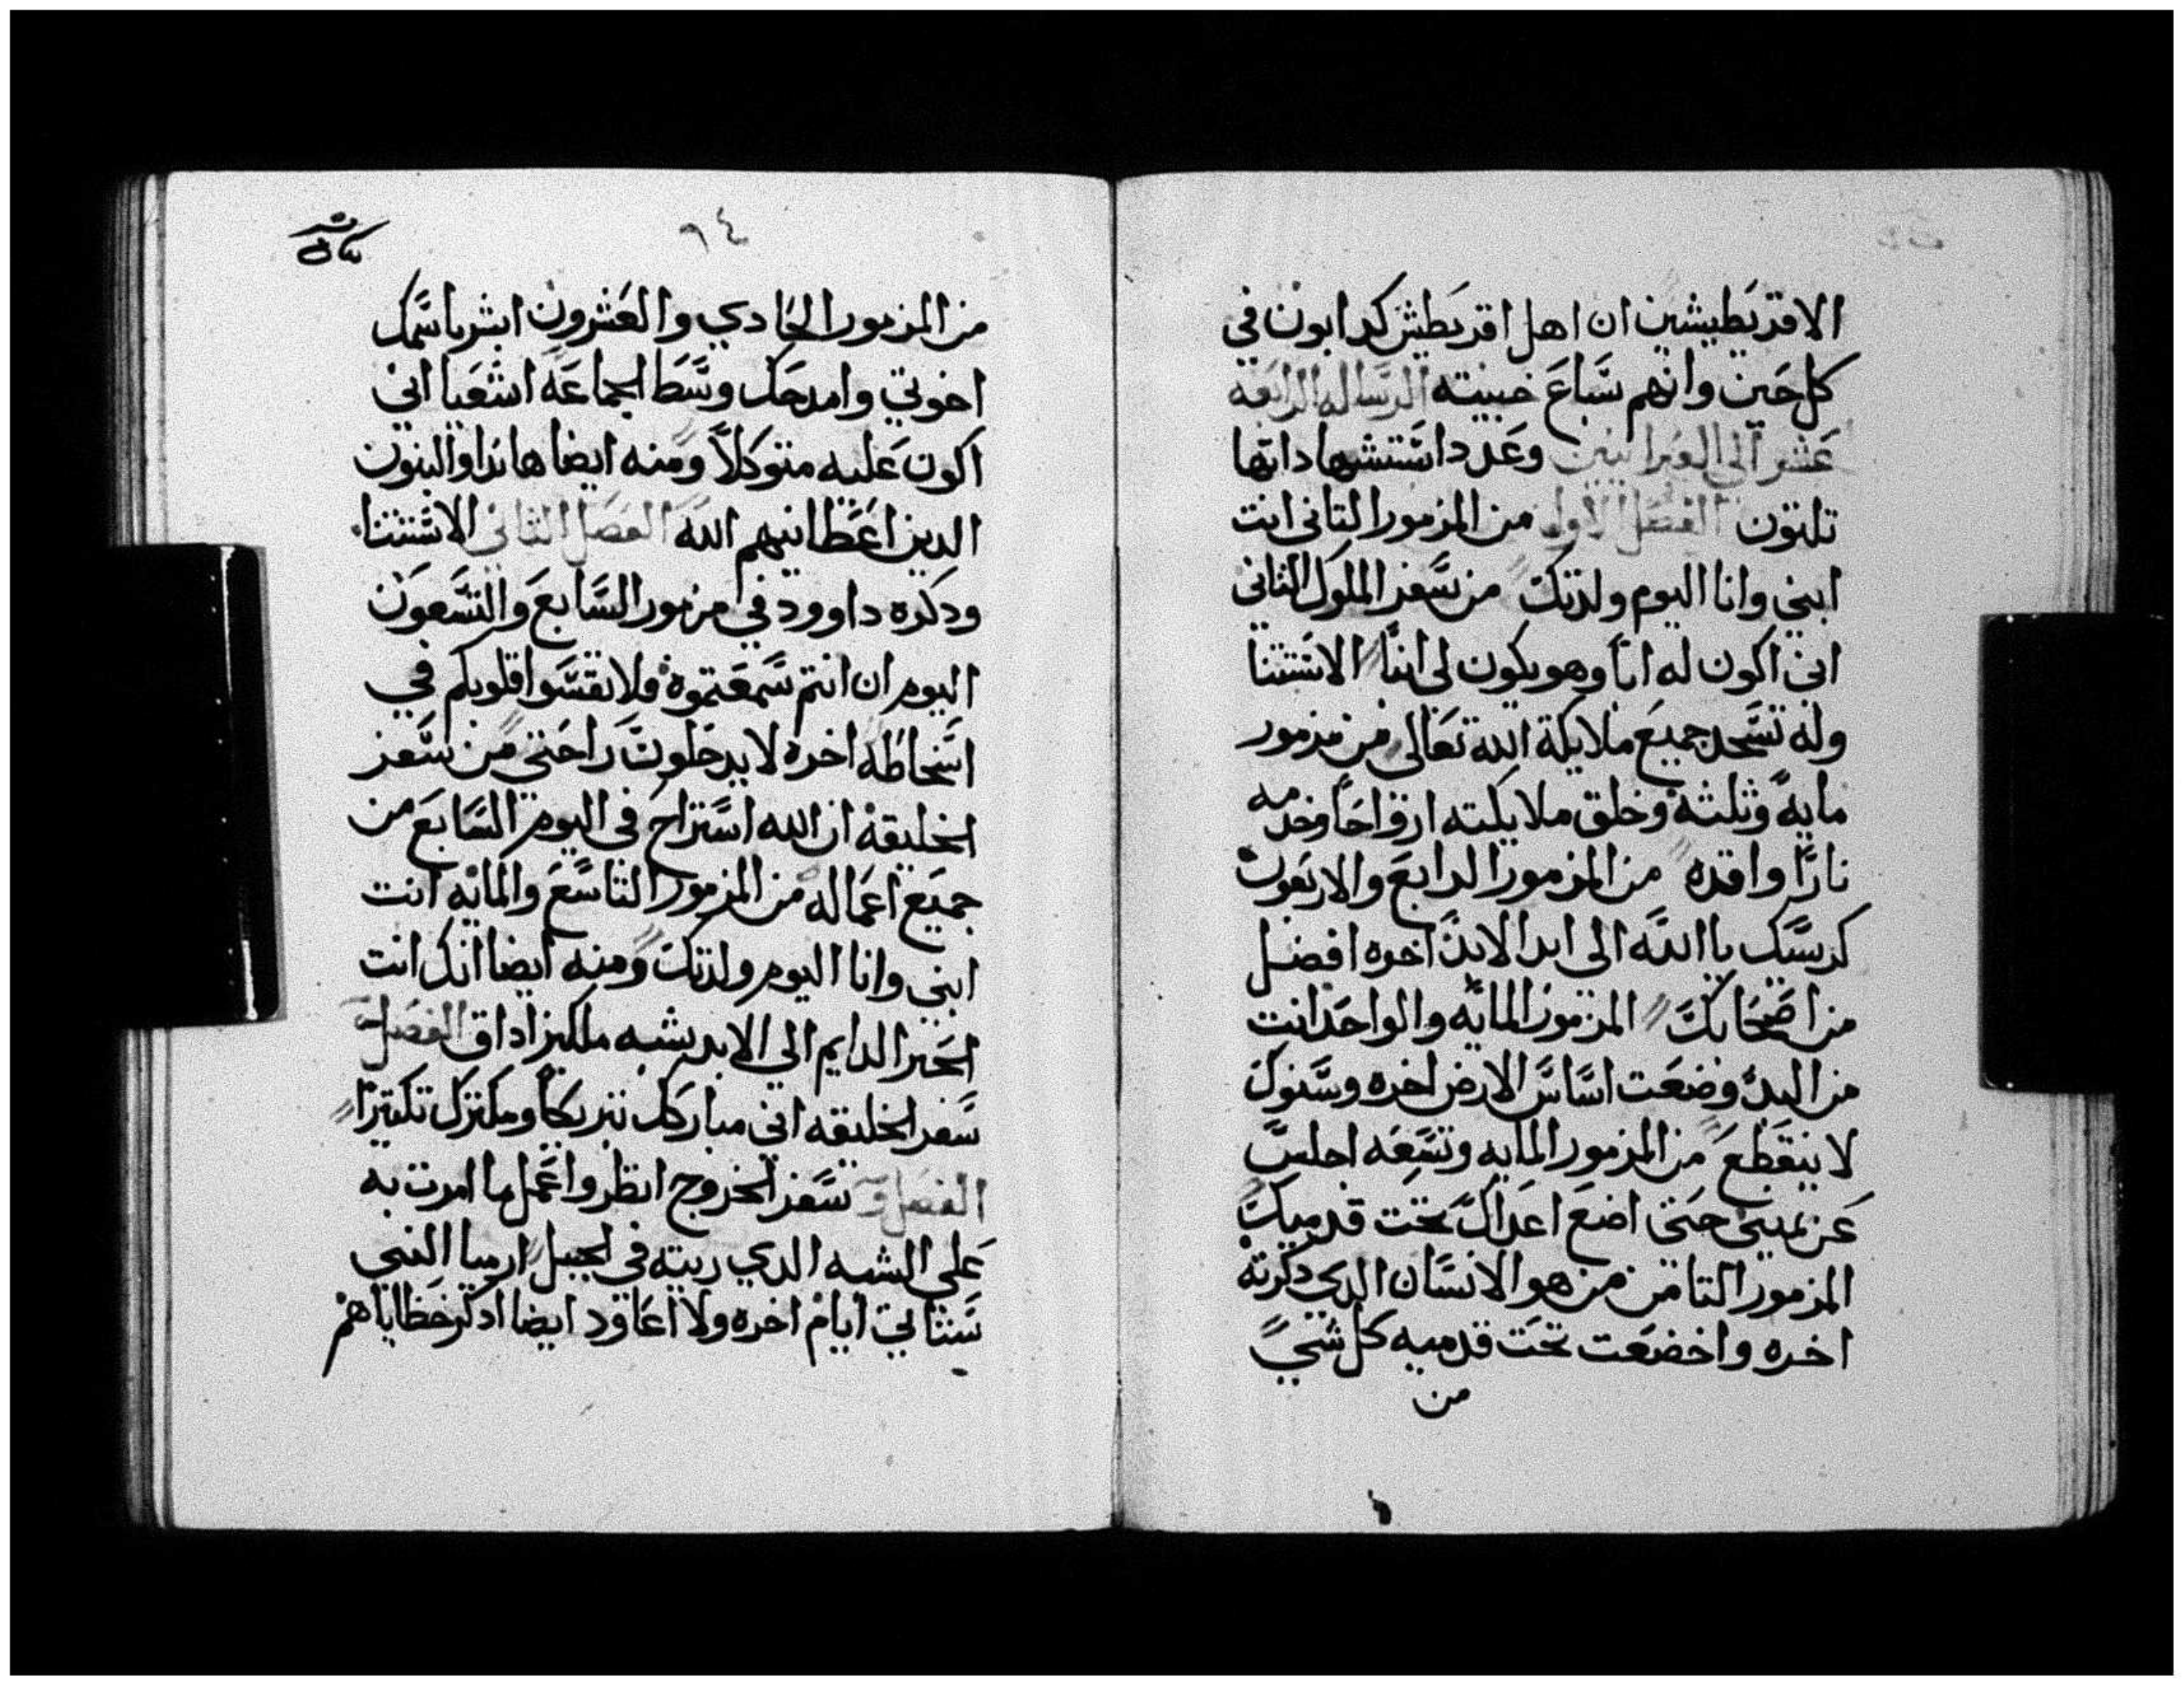 الاقريطيشين ان اهل اقريطش كدابون في
كل حين وانهم سباع خبيته الرساله الرابعه
عشر الى العبرانيين وعدد استتشهاداتها
تلتون الفصل الاول من المزمور التاني انت
ابني وانا اليوم ولدتك من سفر الملوك الثاني
اني اكون له ابا وهو يكون لي ابنا الاستتنا
وله تسجد جميع ملايكة الله تعالى من مزمور
مايه وثلثه وخلق ملايكته ارواحا وخدمه
نارا واقده من المزمور الرابع والاربعون
كرسيك ياالله الى ابد الابد اخره افضل
من اصحابك المزمور المايه والواحد انت
من البدء وضعت اساس الارض اخره وسنوك
لا ينقطع من المزمور المايه وتسعه اجلس
عن يميني حتى اضع اعداك تحت قدميك
المزمور التامن من هو الانسان الدي دكرته
اخره واخضعت تحت قدميه كل شي
من
٩٤
من المزمور الحادي والعشرون ابشر باسمك
اخوتي وامدحك وسط الجماعه اشعيا اني
اكون عليه متوكلا ومنه ايضا هاندا والبنون
الدين اعطانيهم الله الفصل الثاني الاشتتنا
ودكره داوود في مزمور السابع والتسعون
اليوم ان انتم سمعتموه فلا تقسوا قلوبكم في
اسخاطه اخره لا يدخلون راحتي من سفر
الخليقه ان الله استراح في اليوم السابع من
جميع اعماله من المزمور التاسع والمايه انت
ابني وانا اليوم ولدتك ومنه ايضا انك انت
الحبر الدايم الى الابد يشبه ملكيزاداق الفصل
سفر الخليقه اني مباركك تبريكا ومكترك تكتيرا
الفصل سفر الخروج انظر واعمل ما امرت به
على الشبه الدي ريته في الجبل ارميا النبي
ستاتي ايام اخره ولا اعاود ايضا ادكر خطاياهم